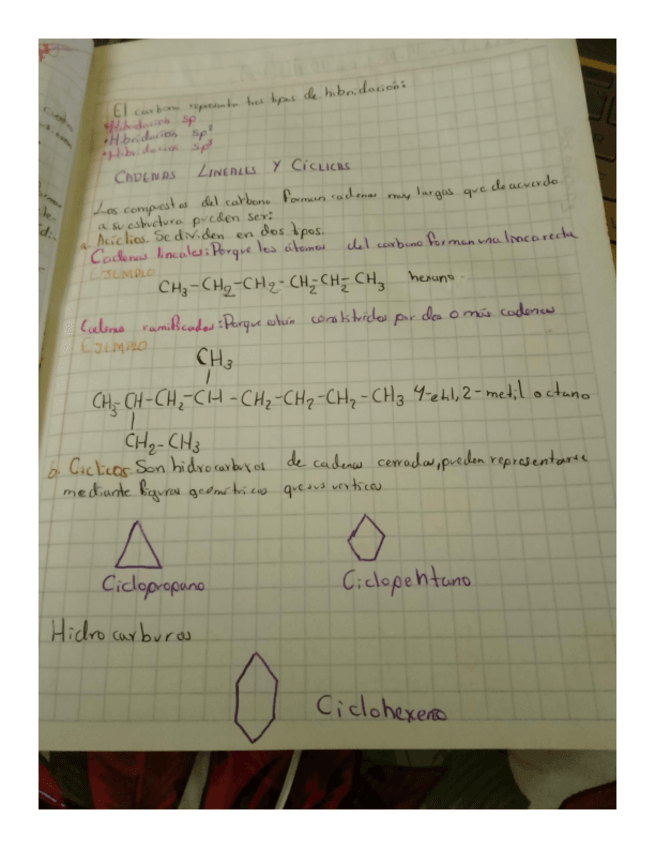 El carbono representa tres tipos de hibridación:
•Hibridación sp
•Hibridación sp²
•Hibridación sp³
CADENAS LINEALES Y CÍCLICAS
Los compuestos del carbono forman cadenas muy largas que de acuerdo
a su estructura pueden ser:
a. Acíclicos. Se dividen en dos tipos.
Cadenas lineales: Porque los átomos del carbono forman una línea recta
EJEMPLO
CH₃-CH₂-CH₂-CH₂-CH₂-CH₃ hexano.
Cadenas ramificadas: Porque están constituidos por dos o más cadenas
EJEMPLO
CH₃
CH₃-CH-CH₂-CH-CH₂-CH₂-CH₂-CH₃ 4-etil, 2-metil octano
CH₂-CH₃
b. Cíclicos Son hidrocarburos de cadenas cerradas, pueden representarse
mediante figuras geométricas que sus vertices
Ciclopropano
Ciclopentano
Hidrocarburos
Ciclohexeno